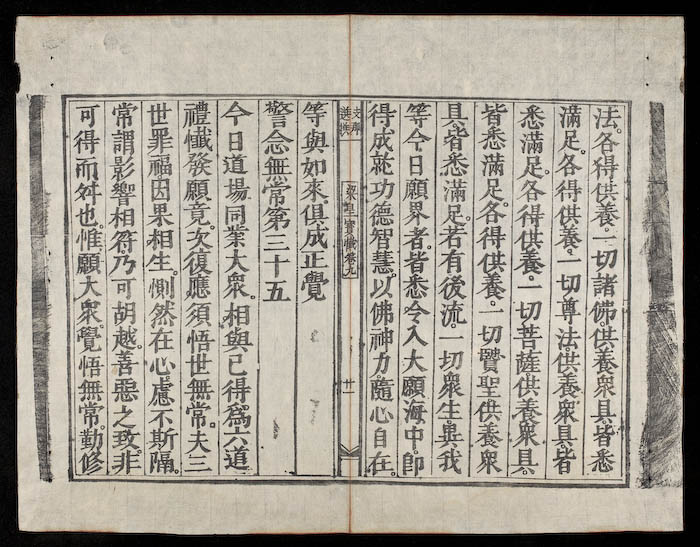 法。各得供養。一切諸佛供養衆具。皆悉
滿足。各得供養。一切尊法。供養衆具皆
悉滿足。各得供養。一切菩薩供養衆具。
皆悉滿足。各得供養。一切賢聖供養衆
具。皆悉滿足。若有後流。一切衆生。異我
等今日願界者。皆悉令入大願海中。即
得成就功德智慧。以佛神力。隨心自在。
支那
撰述
梁皇寶懺卷九
廿一
等與如來。俱成正覺
警念無常第三十五
今日道場同業大衆。相與已得。爲六道
禮懺發願竟。次復應須悟世無常。夫三
世罪福因果相生。惻然在心。慮不斯隔。
常謂影響相符乃可胡越。善惡之致。非
可得而舛也。惟願大衆。覺悟無常。勤修